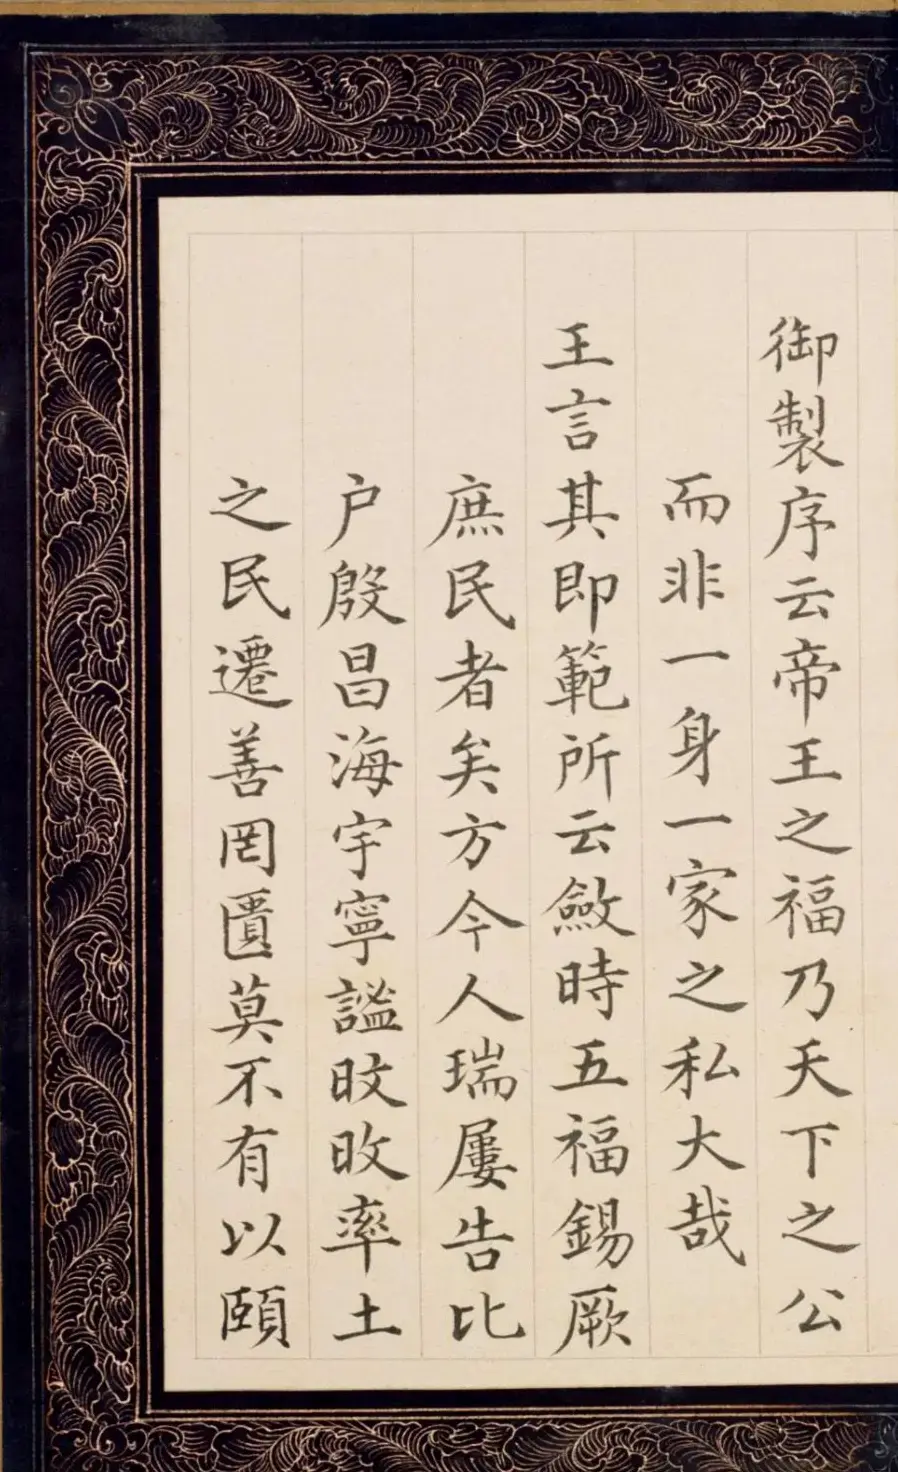 御製序云帝王之福乃天下之公
而非一身一家之私大哉
王言其即範所云斂時五福錫厥
庶民者矣方今人瑞屢告比
户殷昌海宇寧謐旼旼率土
之民遷善罔匱莫不有以頤